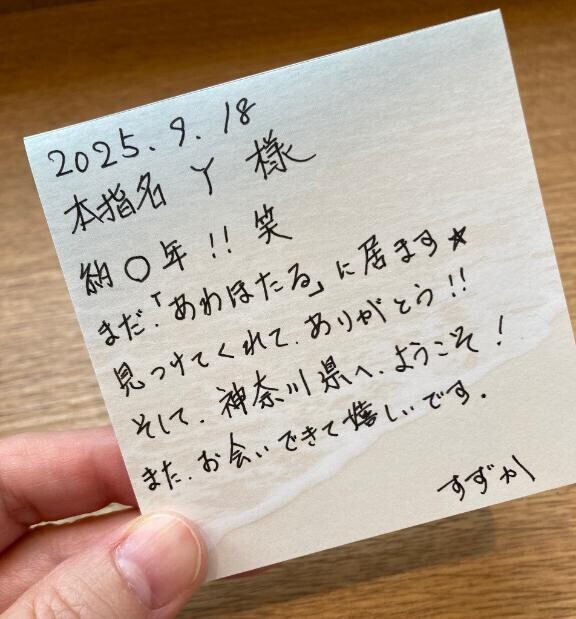 2025.9.18
本指名 Y 様
納〇年!! 笑
まだ.「あわほたる」に居ます★
見つけてくれて、ありがとう!!
そして、神奈川県へ、ようこそ!
また、お会いできて嬉しいです.
すずか